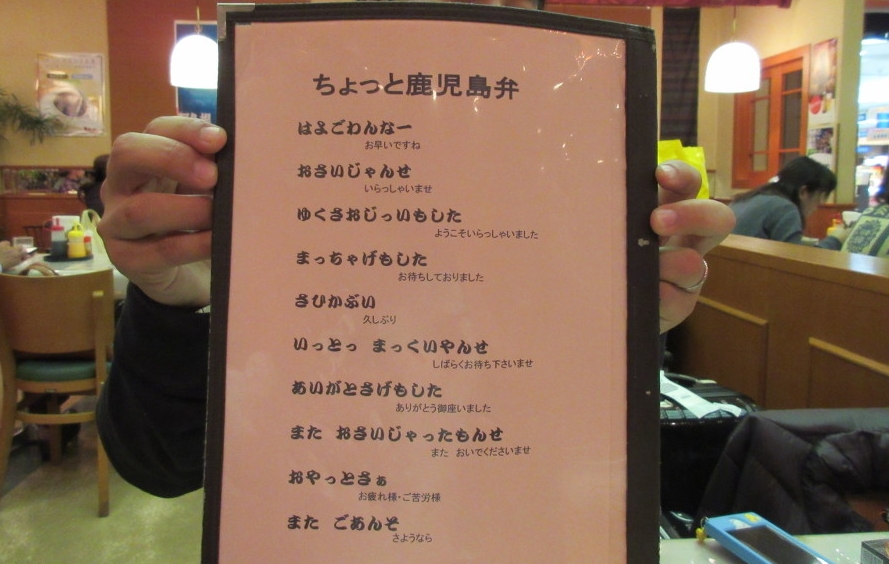 ちょっと鹿児島弁
はよごわんなー
お早いですね
おさいじゃんせ
いらっしゃいませ
ゆくさおじっいもした
ようこそいらっしゃいました
まっちゃげもした
お待ちしておりました
さひかぶい
久しぶり
いっとっ まっくいやんせ
しばらくお待ち下さいませ
あいがとさげもした
ありがとう御座いました
また おさいじゃったもんせ
また おいでくださいませ
おやっとさぁ
お疲れ様・ご苦労様
また ごあんそ
さようなら